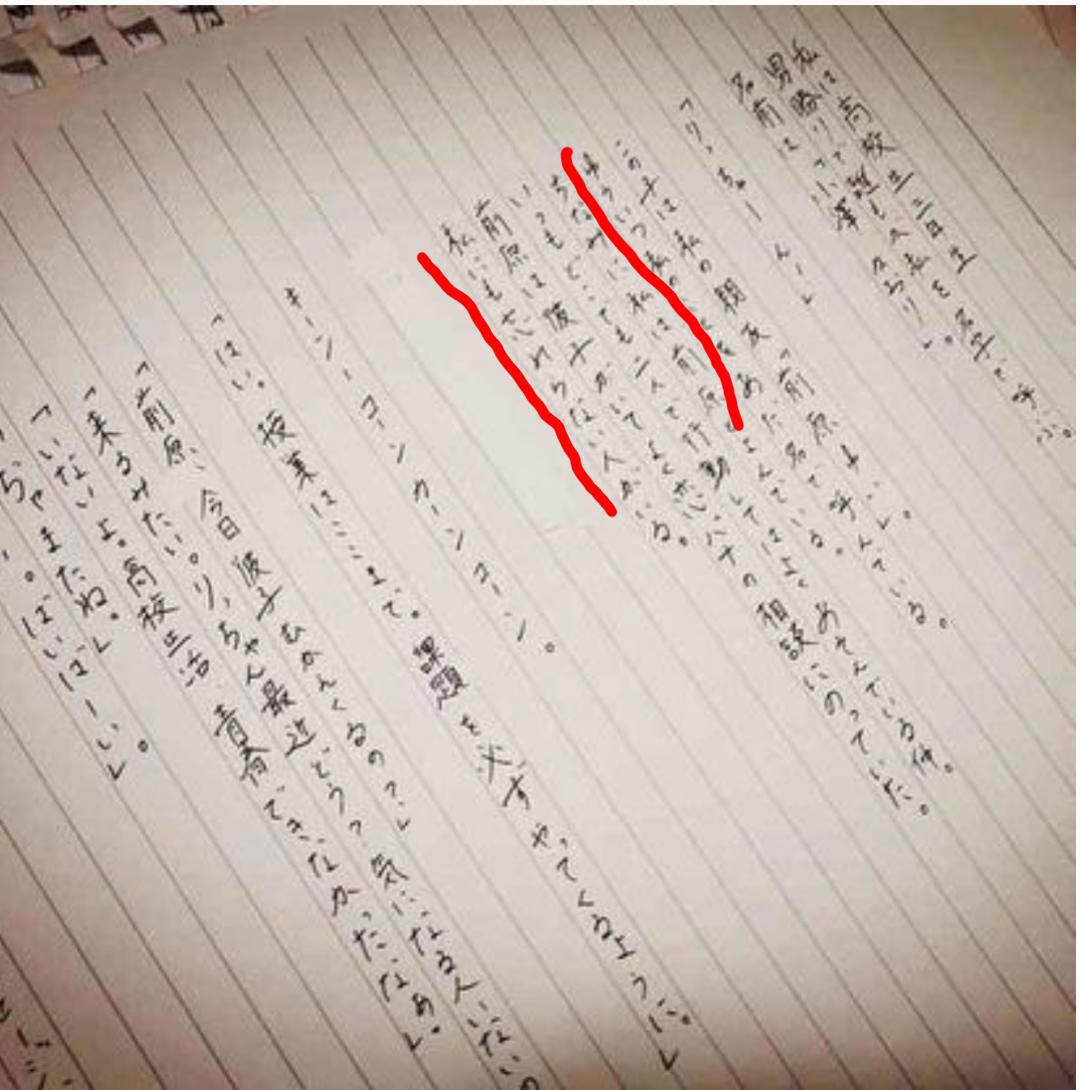 私は高校生三年生
男勝りで誰もが私を名字で呼ぶ。
名前は小澤
「りっちゃーんー」
この子は私の親友「前原ゆい」。
ゆういつ私のことをあだ名で呼んでいる。
ちなみに私は前原とよんでいる。
いつもどこでも二人で行動してはよくあそんでいる仲。
前原は彼子がいてよく恋バナの相談にのっていた。
私にも忘れらない人がいる。
キーンーコーンカーンコーン。
「はい。授業はここまで。課題を必ずやってくるように。」
「前原、今日彼子むかえくるの？」
「来るみたい。りっちゃん最近どうって気になる人いないの
「いないよ。高校生活青春できなかったなぁ。」
ちゃまたね。」
。ばいばーい」